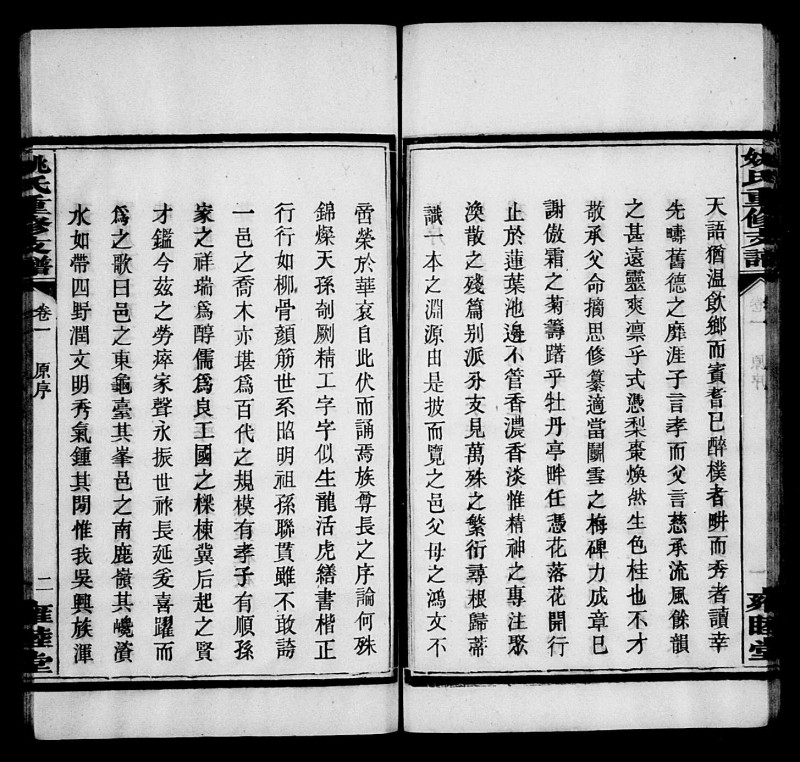 姚氏重修支譜
卷一 原序
一
雍睦堂
天語猶温飲鄉而賓耆已醉樸者畊而秀者讀幸
先疇舊德之靡涯子言孝而父言慈承流風餘韻
之甚遠靈爽凛乎式憑梨棗煥然生色桂也不才
敬承父命摛思修纂適當鬭雪之梅碑力成章已
謝傲霜之菊籌躇乎牡丹亭畔任憑花落花開行
止於蓮葉池邊不管香濃香淡惟精神之專注聚
渙散之殘篇别派分支見萬殊之繁衍尋根歸蒂
識一本之淵源由是披而覽之邑父母之鴻文不
啻榮於華衮自此伏而誦焉族尊長之序論何殊
錦燦天孫剞劂精工字字似生龍活虎繕書楷正
行行如柳骨顔筋世系昭明祖孫聯貫雖不敢誇
一邑之喬木亦堪爲百代之規模有孝子有順孫
家之祥瑞爲醇儒爲良工國之樑棟冀后起之賢
才鑑今兹之勞瘁家聲永振世祚長延爰喜躍而
爲之歌曰邑之東龜臺其峯邑之南鹿嶺其巉濱
水如帶四野潤文明秀氣鍾其閒惟我吳興族渾
姚氏重修支譜
卷一 原序
二
雍睦堂